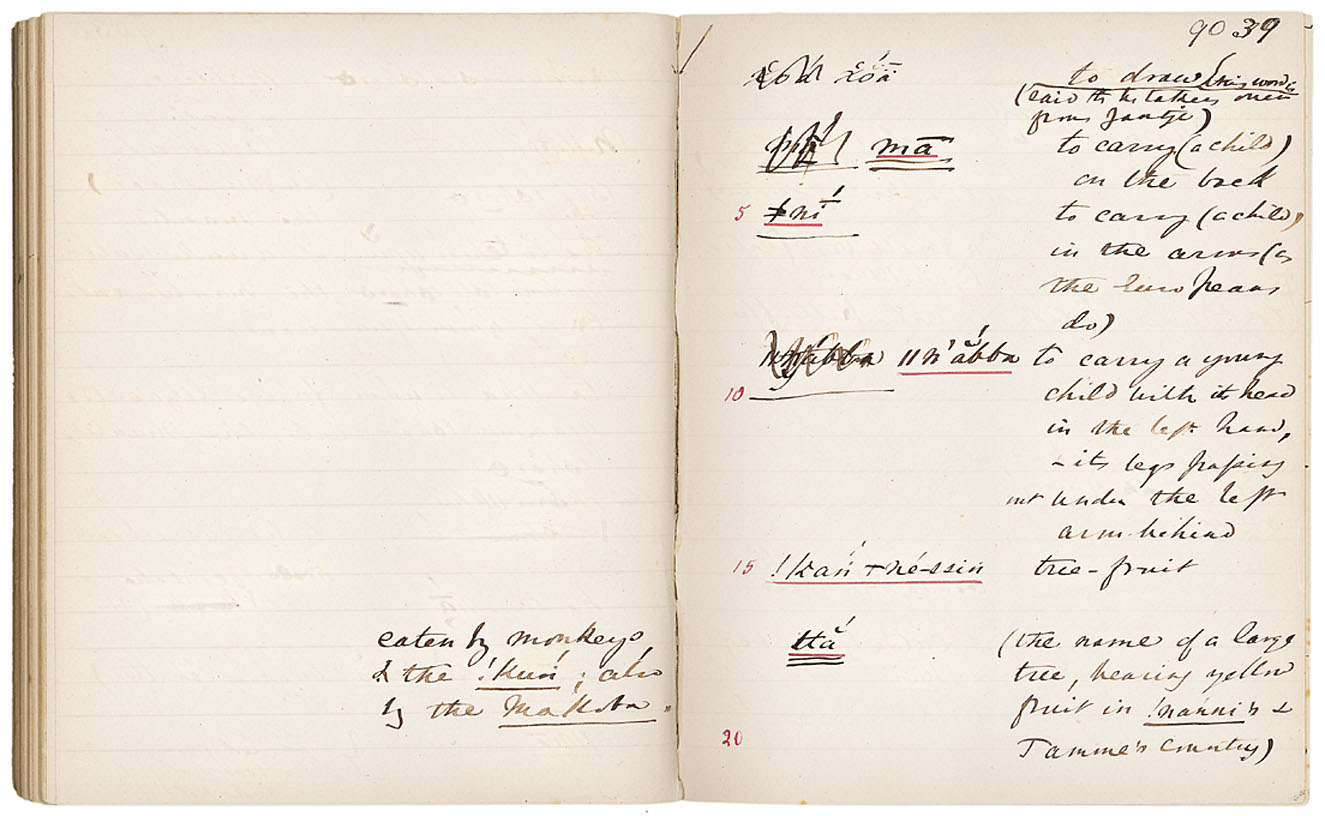 eaten by monkeys
& the !kuṅ; also
by the Mákoba.
9039
to draw (this word is
(said he has taken over
from Jantje)
mā to carry (a child)
on the back
5 ǂní to carry (a child)
in the arms (as
the Europeans
do)
ǁn'ắbba to carry a young
10 child with its head
in the left hand,
- its legs passing
out under the left
arm behind
15 !kań ǂné-ssin tree-fruit
ttắ (the name of a large
tree, bearing yellow
fruit in !nánni's &
20 Tamme's country)